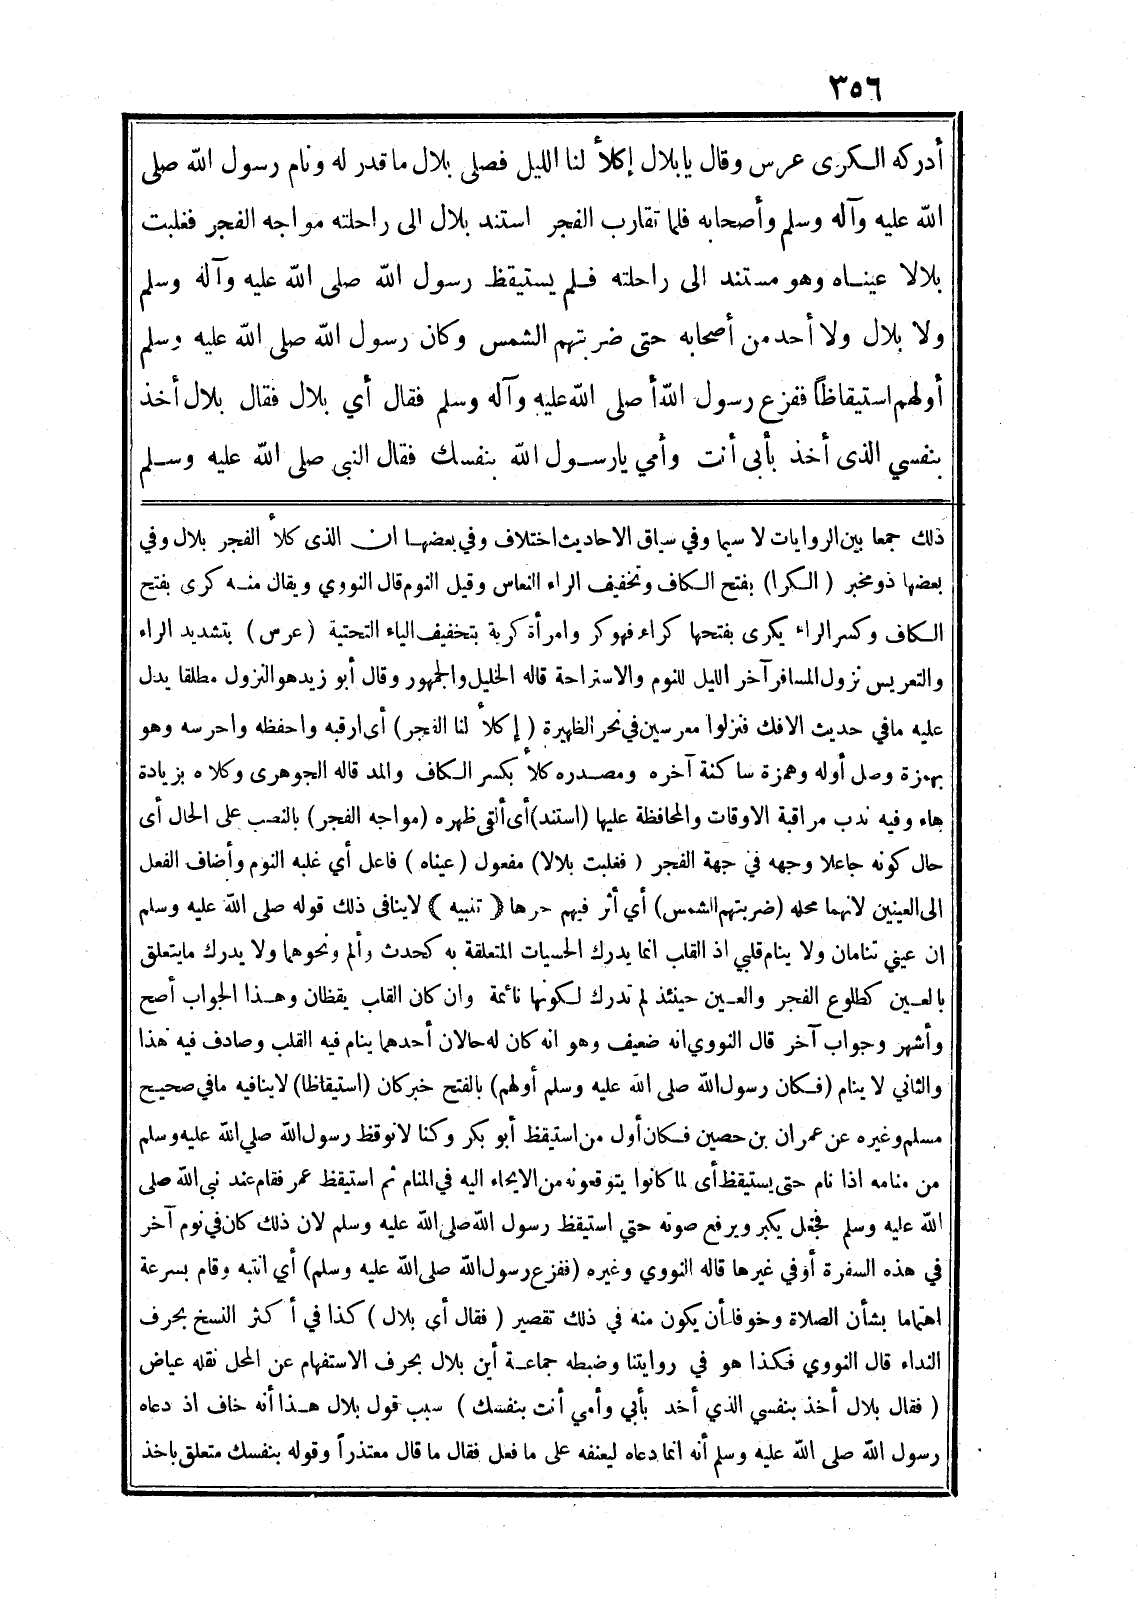 ٣٥٦
أدركه الـكرى عرس وقال يابلال إكلأ لنا الليل فصلى بلال ماقدر له ونام رسول الله صلى
الله عليه وآله وسلم وأصحابه فلما تقارب الفجر استند بلال الى راحلته مواجه الفجر فغلبت
بلالا عينـاه وهو مستند الى راحلته فـلم يستيقظ رسول الله صلى الله عليه وآله وسلم
ولا بلال ولا أحد من أصحابه حتى ضربتهم الشمس وكان رسول الله صلى الله عليه وسلم
أولهم استيقاظاً ففزع رسول اللهأ صلى الله عليه وآله وسلم فقال أي بلال فقال بلال أخذ
بنفسي الذى أخذ بأبى أنت وأمي يارسـول الله بنفسك فقال النبى صلى الله عليه وسـلم
ذلك جمعا بين الروايات لا سيما وفي سياق الاحاديث اختلاف وفي بعضهـا ان الذى كلأ الفجر بلال وفي
بعضها ذو مخبر ( الـكرا) بفتح الـكاف وتخفيف الراء النعاس وقيل النوم قال النووي ويقال منـه كرى بفتح
الـكاف وكسر الراء يكرى بفتحها كراء فهو كر وامرأة كرية بتخفيف الياء التحتية (عرس ) بتشديد الراء
والتعريس نزول المسافر آخر الليل للنوم والاستراحة قاله الخليل والجمهور وقال أبو زيد هو النزول مطلقا يدل
عليه مافي حديث الافك فنزلوا معرسين في نحر الظهيرة ( إكلأ لنا الفجر ) أى ارقبه واحفظه واحرسه وهو
بهمزة وصل أوله وهمزة ساكنة آخره ومصـدره كلأ بكسر الـكاف والمد قاله الجوهرى وكلاه بزيادة
هاء وفيه ندب مراقبة الاوقات والمحافظة عليها (استند) أى ألقى ظهره (مواجه الفجر) بالنصب على الحال أى
حال كونه جاعلا وجهه في جهة الفجر ( فغلبت بلالا) مفعول (عيناه ) فاعل أي غلبه النوم وأضاف الفعل
الى العينين لانهما محله (ضربتهم الشمس) أي أثر فيهم حرها ﴿ تنبيه ﴾ لاينافى ذلك قوله صلى الله عليه وسلم
ان عيني تنامان ولا ينام قلبي اذ القلب انما يدرك الحسيات المتعلقة به كحدث وألم ونحوهما ولا يدرك مايتعلق
بالعـين كطلوع الفجر والعـين حينئذ لم تدرك لـكونها نائمة وان كان القلب يقظان وهـذا الجواب أصح
وأشهر وجواب آخر قال النووي انه ضعيف وهو انه كان له حالان أحدهما ينام فيه القلب وصادف فيه هذا
والثاني لا ينام (فـكان رسول الله صلى الله عليه وسلم أولهم) بالفتح خبر كان (استيقاظا) لاينافيه مافي صحيح
مسلم وغيره عن عمران بن حصين فـكان أول من استيقظ أبو بكر وكنا لانوقظ رسول الله صلى الله عليه وسلم
من منامه اذا نام حتى يستيقظ أى لما كانوا يتوقعونه من الايحاء اليه في المنام ثم استيقظ عمر فقام عند نبي الله صلى
الله عليه وسلم فجعل يكبر ويرفع صوته حتي استيقظ رسول الله صلى الله عليه وسلم لان ذلك كان في نوم آخر
في هذه السفرة أوفي غيرها قاله النووي وغيره (ففزع رسول الله صلى الله عليه وسلم) أي انتبه وقام بسرعة
اهتماما بشأن الصلاة وخوفا أن يكون منه في ذلك تقصير ( فقال أي بلال ) كذا في أ كثر النسخ بحرف
النداء قال النووي فـكذا هو في روايتنا وضبطه جماعـة أين بلال بحرف الاستفهام عن المحل نقله عياض
( فقال بلال أخذ بنفسي الذي أخد بأبي وأمي أنت بنفسك ) سبب قول بلال هـذا أنه خاف اذ دعاه
رسول الله صلى الله عليه وسلم أنه انما دعاه ليعنفه على ما فعل فقال ما قال معتذراً وقوله بنفسك متعلق باخذ